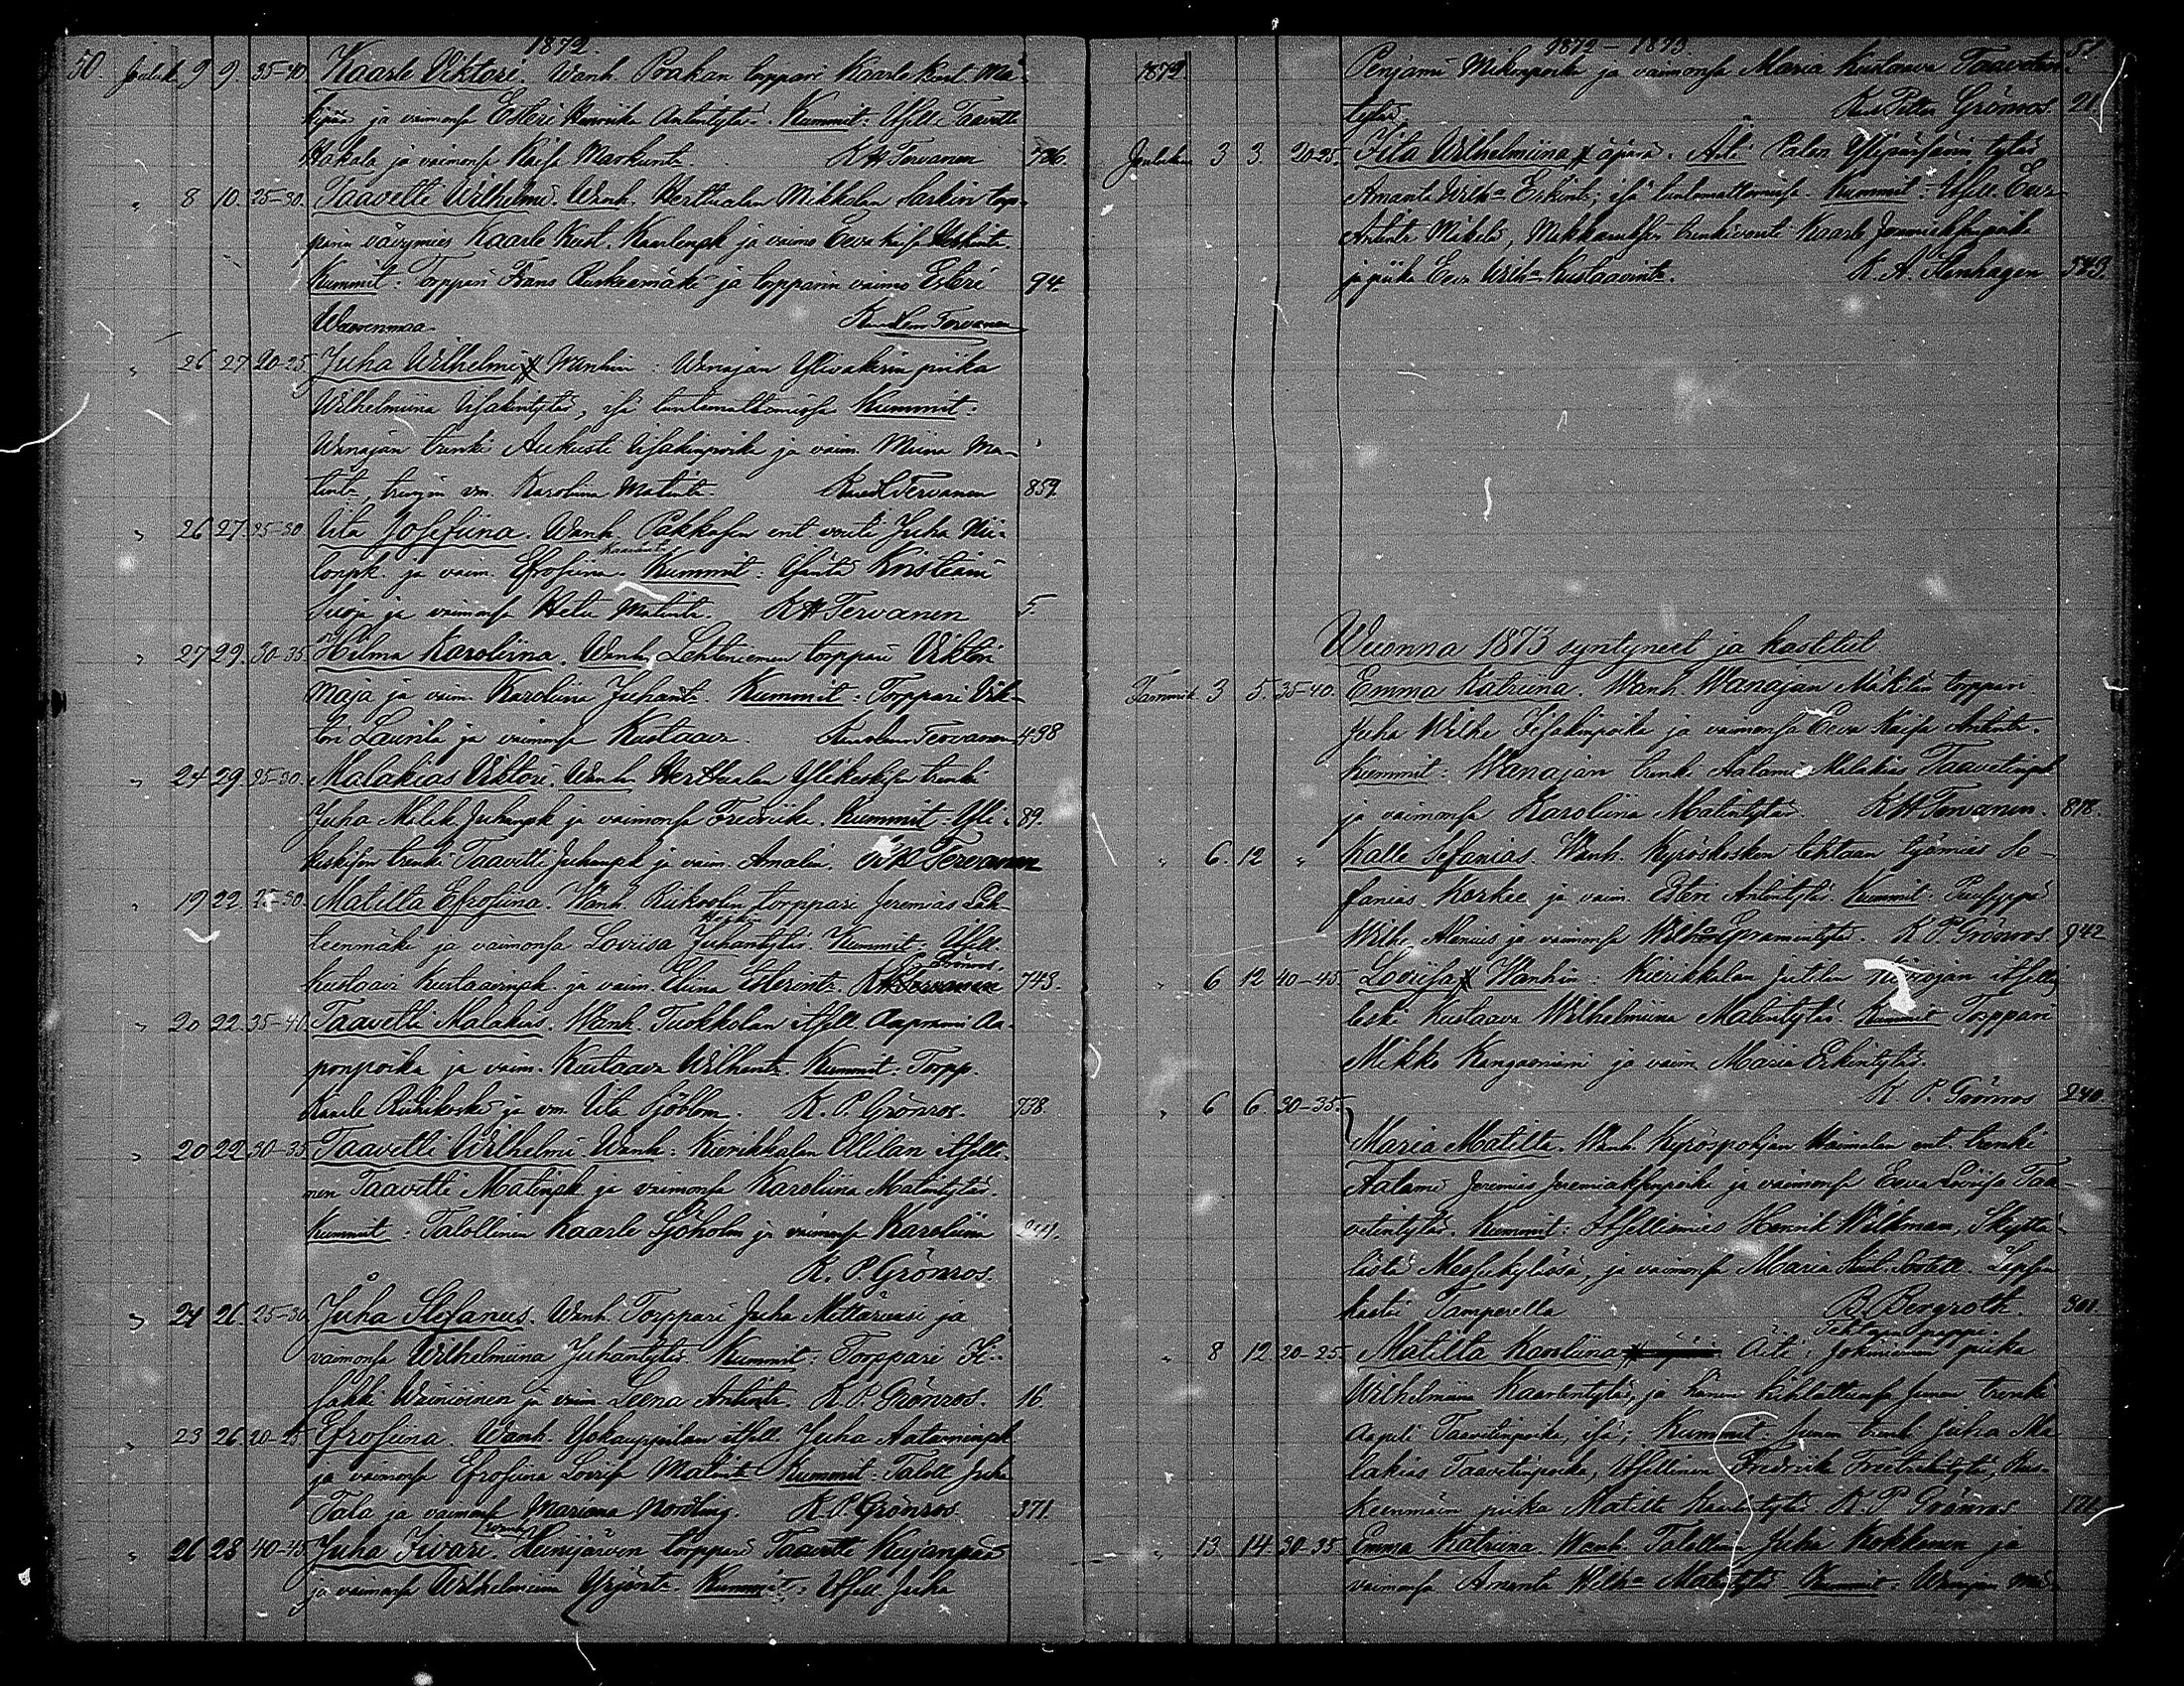 1872.
50. Jouluk. 9 9. 35-40 Kaarle Viktori. Wanh. Poakan torppari Kaarle Kust. Mä-
kipää ja vaimonsa Esteri Henriika Antintytär. Kummit: Itsell. Taavetti
Hakala ja vaimonsa Kaisa Markunt. KH Tervanen 726.
" 8 10. 25-30. Taavetti Wilhelmi. Wanh. Herttualan Mikkolan Sarkin torp-
parin vävymies Kaarle Kust. Kaarlenpk ja vaimo Eeva Kaisa
Kummit: Torppari Frans Ruskeemäki ja torpparin vaimo Esteri 94.
Wuorenmaa. Tervanen
" 26 27 20-25. Juha Wilhelmi Wanhin: Wanajan Ylivakerin piika
Wilhelmiina Iisakintytär, isä tuntemattomissa Kummit:
Wanajan trenki Aukusti Iisakinpoika ja vaim. Miina Ma-
tintr, trengin vm. Karoliina Matintr. Tervanen 859.
" 26 27. 25-30 Iita Josefiina. Wanh. Pakkasen ent. vouti Juha Nii-
lonpk. ja vaim. Efrosiina. Kummit: Isäntä Kristiani
Suoja ja vaimonsa Hetu Matintr. KH Tervanen 5.
" 27 29. 30-35. Hilma Karoliina. Wanh. Lehteniemen torppari Viktori
Maja ja vaim. Karoliina Juhant. Kummit: Torppari Vik-
tori Laurila ja vaimonsa Kustaava. Tervanen 498
" 24 29. 25-30. Malakias Viktori. Wanh. Herttualan Ylikeskisen trenki
Juha Malak. Juhanpk ja vaimonsa Fredriika. Kummit: Yli- 89.
keskisen trenki Taavetti Juhanpk ja vaim. Amalia. Tervanen
" 19 22. 25-30. Matilta Efrosiina. Wanh. Riikoolin torppari Jeremias Leh-
teenmäki ja vaimonsa Loviisa Juhantytär. Kummit: Itsell.
Grönros.
Kustaavi Kustaavinpk. ja vaim. Eliina Esterintr. 743.
" 20 22. 35-40 Taavetti Malakias. Wanh. Tuokkolan itsell. Aaprami Aa-
ponpoika ja vaim. Kustaava Wilhentr. Kummit: Torpp.
Kaarle Riihikoski ja vm. Iita Sjöblom. K. P. Grönros. 738.
" 20 22 30-35 Taavetti Wilhelmi. Wanh: Kierikkalan Ollilan itselli-
nen Taavetti Matinpk ja vaimonsa Karoliina Matintytär.
Kummit: Talollinen Kaarle Sjöholm ja vaimonsa Karoliina
K. P. Grönros.
" 24 26. 25-30 Juha Stefanus. Wanh. Torppari Juha Mettäruusi ja
vaimonsa Wilhelmiina Juhantytär. Kummit: Torppari Ii-
sakki Wäinioinen ja vaim. Leena Antintr. K. P. Grönros. 16.
" 23 26. 20-25 Efrosiina. Wanh. Yokauppilan itsell. Juha Aataminpk
ja vaimonsa Efrosiina Loviisa Matintr. Kummit: Taloll. Juha
Tala ja vaimonsa Mariana Nordling. K. P. Grönros. 371.
" 26 28 40-45 Juha Iivari. Wanh. Heinijärven torppari Taavetti Kujanpää
ja vaimonsa Wilhelmiina Yrjöntr. Kummit: Itsell Juha
1872 - 1873 51
1872 Penjami Mikonpoika ja vaimonsa Maria Kustaava Taavetin-
tytär. Grönros. 21
Jouluk. 3 3. 20-25. Fiita Wilhelmiina äpärä. Äiti Palon Ylijäräsän tytär
Amanta Wilh:a Erkintr; isä tuntemattomissa. Kummit: Itsell. Eeva
Antintr Mäkelä, trenkivouti Kaarle
ja piika Eeva Wilh:a Kustaavintr. K. A. Stenhagen 573.
Wuonna 1873 syntyneet ja kastetut
Tammik. 3 5. 35-40. Emma Katriina. Wanh. Wanajan Mäkilän torppari
Juha Wilhe Iisakinpoika ja vaimonsa Eeva Kaisa Antintr.
Kummit: Wanajan trenki Aatami Malakias Taavetinpk
ja vaimonsa Karoliina Matintytär. KH Tervanen. 878.
" 6. 12 " Kalle Sefanias. Wanh. Kyröskosken tehtaan työmies Se-
fanias Korkee ja vaim. Esteri Antintytär. Kummit: Puuseppä
Wilhe Alenius ja vaimonsa Wilh:a Epramintytär. K. P. Grönros. 942
" 6 12 40-45 Loviisa Wanhin: Kierikkalan Jutilan itsellis
leski Kustaava Wilhelmiina Matintytär. Kummit Torppari
Mikko Kangasniemi ja vaim. Maria Erkintytär.
K P. Grönros 240.
" 6 6. 30-35. Maria Matilta. Wanh. Kyröspohjan Haimalan ent. trenki
Aatami Jeremias Jeremiaksenpoika ja vaimonsa Eeva Loviisa Taa-
vetintytär. Kummit: Itsellismies Henrik Wilkman, Skyttä-
lästä Messukylässä, ja vaimonsa Maria
kastoi Tamperella B. Bergroth. 301.
Tehtaan pappi.
" 8 12 20-25 Matilta Karoliina Äiti: Jokiniemen piika
Wilhelmiina Kaarlentytär, ja hänen kihlattunsa Junen trenki
Aapeli Taavetinpoika, isä; Kummit: Junen trenki Juha Ma-
lakias Taavetinpoika, Itsellinen Fredriika Freetrikintytär, Rus-
keenmäen piika Matilta Kaarlentytär. K. P Grönros 121.
" 13 14 30-35 Emma Katriina. Wanh. Talollinen Juha Kokkonen ja
vaimonsa Amanta Wilh:a Matintytär. Kummit: Wanajan Mä-